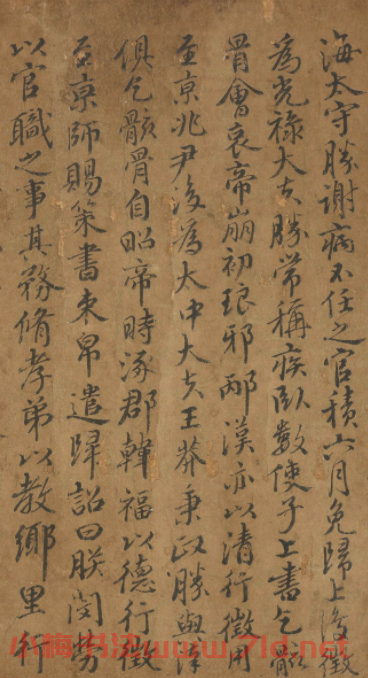 海太守勝謝病不任之官積六月免歸上復徵
為光祿大夫勝常稱疾臥數使子上書乞骸
骨會哀帝崩初琅邪邴漢亦以清行徵用
至京兆尹後為太中大夫王莽秉政勝與漢
俱乞骸骨自昭帝時涿郡韓福以德行徵
至京師賜策書束帛遣歸詔曰朕閔勞
以官職之事其務脩孝弟以教鄉里行
小梅书法www.7ld.net